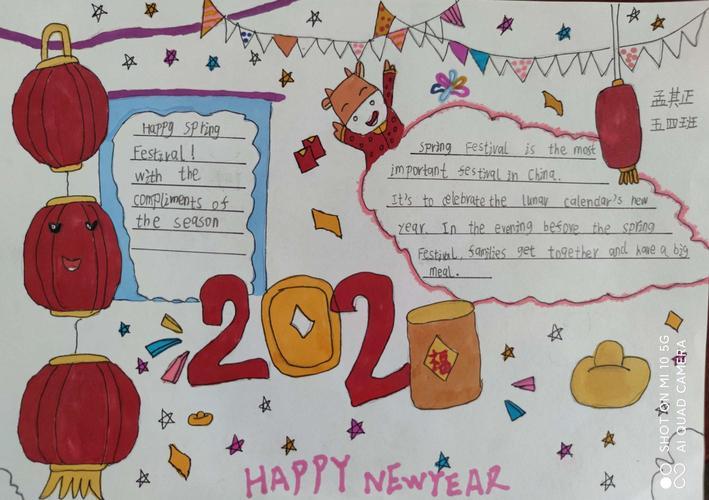 Happy Spring
Festival!
with the
compliments of
the season
孟其正
五四班
Spring Festival is the most
important festival in China.
It's to celebrate the lunar calendar's new
year. In the evening before the spring
Festival, families get together and have a big
meal.
202
福
HAPPY NEWYEAR
SHOT ON MI 10 5G
AI QUAD CAMERA